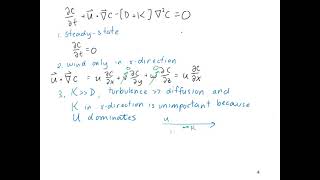 ∂C/∂t + u⃗ · ∇⃗C - [D + K] ∇²C = 0
1. steady-state
∂C/∂t = 0
2. wind only in x-direction
u⃗ · ∇⃗C = u ∂C/∂x + v ∂C/∂y + w ∂C/∂z = u ∂C/∂x
3. K >> D, turbulence >> diffusion and
K in x-direction is unimportant because
U dominates
u
K